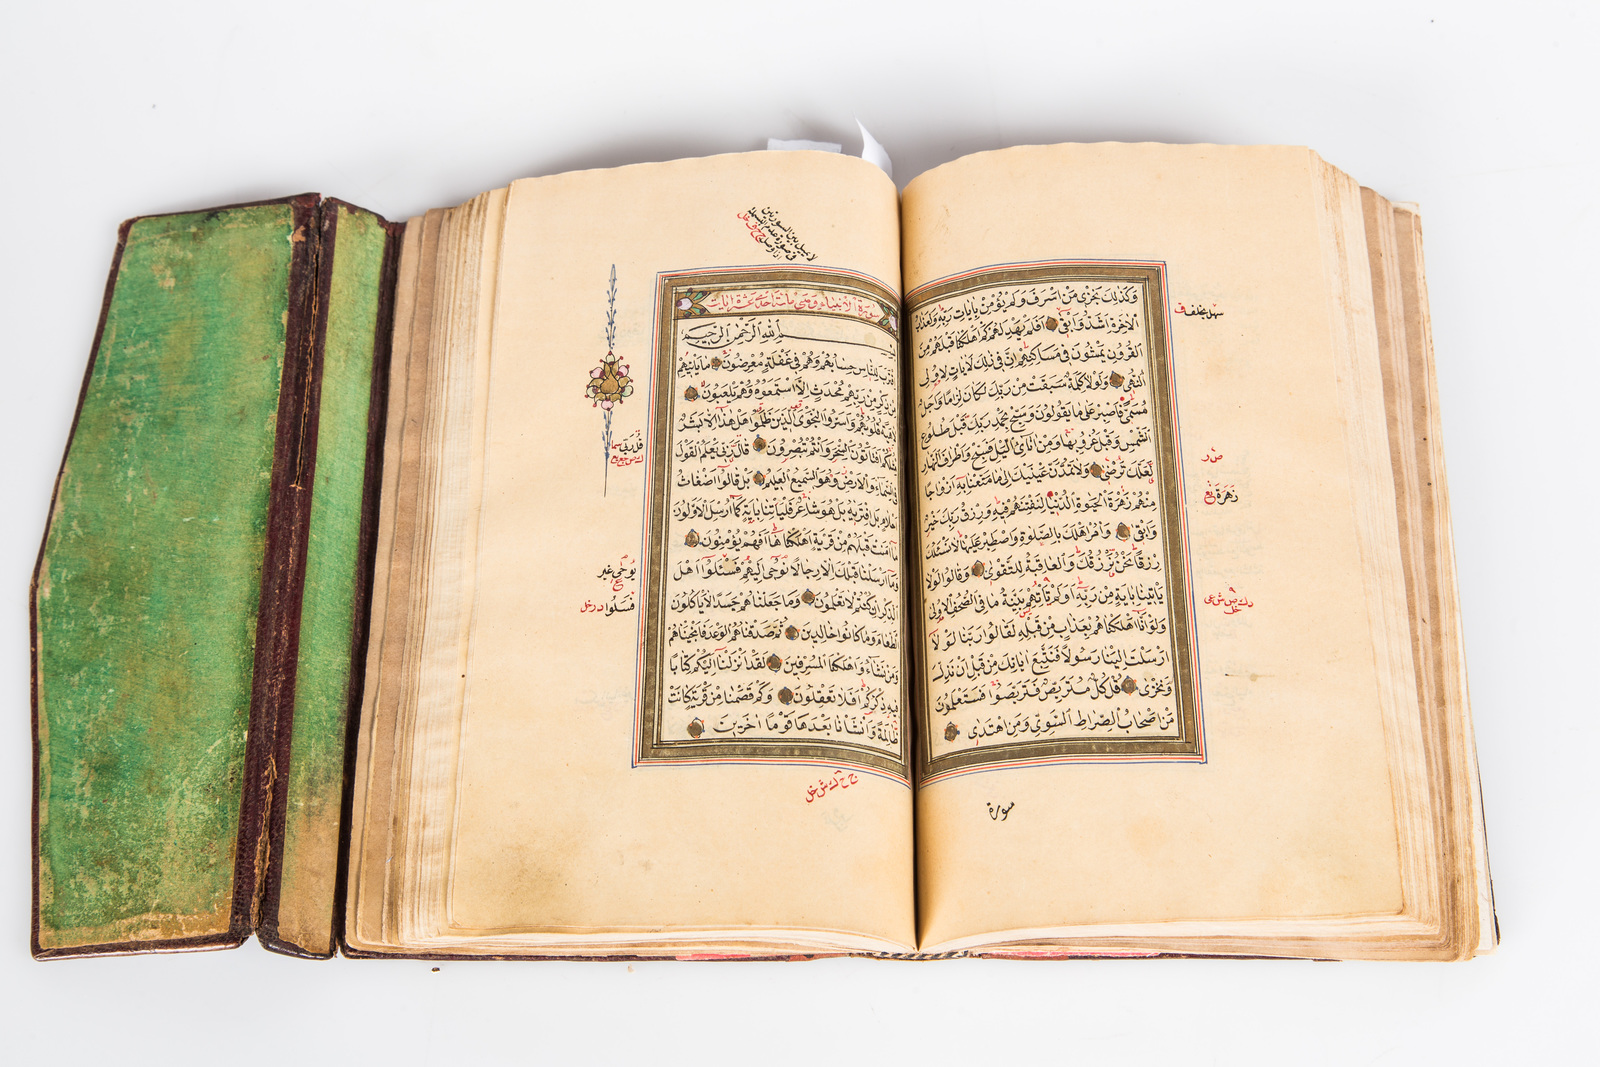 وَكَذٰلِكَ نَجْزِى مَنْ اَسْرَفَ وَلَمْ يُؤْمِنْ بِاٰيَاتِ رَبِّهٖ وَلَعَذَابُ
الْاٰخِرَةِ اَشَدُّ وَاَبْقٰى اَفَلَمْ يَهْدِ لَهُمْ كَمْ اَهْلَكْنَا قَبْلَهُمْ مِنَ
الْقُرُونِ يَمْشُونَ فِى مَسَاكِنِهِمْ اِنَّ فِى ذٰلِكَ لَاٰيَاتٍ لِاُولِى
النُّهٰى وَلَوْلَا كَلِمَةٌ سَبَقَتْ مِنْ رَبِّكَ لَكَانَ لِزَامًا وَاَجَلٌ
مُسَمًّى فَاصْبِرْ عَلٰى مَا يَقُولُونَ وَسَبِّحْ بِحَمْدِ رَبِّكَ قَبْلَ طُلُوعِ
الشَّمْسِ وَقَبْلَ غُرُوبِهَا وَمِنْ اٰنَائِ الَّيْلِ فَسَبِّحْ وَاَطْرَافَ النَّهَارِ
لَعَلَّكَ تَرْضٰى وَلَا تَمُدَّنَّ عَيْنَيْكَ اِلٰى مَا مَتَّعْنَا بِهٖ اَزْوَاجًا
مِنْهُمْ زَهْرَةَ الْحَيٰوةِ الدُّنْيَا لِنَفْتِنَهُمْ فِيهِ وَرِزْقُ رَبِّكَ خَيْرٌ
وَاَبْقٰى وَاْمُرْ اَهْلَكَ بِالصَّلٰوةِ وَاصْطَبِرْ عَلَيْهَا لَا نَسْئَلُكَ
رِزْقًا نَحْنُ نَرْزُقُكَ وَالْعَاقِبَةُ لِلتَّقْوٰى وَقَالُوا لَوْلَا
يَاْتِينَا بِاٰيَةٍ مِنْ رَبِّهٖ اَوَلَمْ تَاْتِهِمْ بَيِّنَةُ مَا فِى الصُّحُفِ الْاُولٰى
وَلَوْ اَنَّا اَهْلَكْنَاهُمْ بِعَذَابٍ مِنْ قَبْلِهٖ لَقَالُوا رَبَّنَا لَوْلَا
اَرْسَلْتَ اِلَيْنَا رَسُولًا فَنَتَّبِعَ اٰيَاتِكَ مِنْ قَبْلِ اَنْ نَذِلَّ
وَنَخْزٰى قُلْ كُلٌّ مُتَرَبِّصٌ فَتَرَبَّصُوا فَسَتَعْلَمُونَ
مَنْ اَصْحَابُ الصِّرَاطِ السَّوِىِّ وَمَنِ اهْتَدٰى
سورة
زَهَرَةَ
سورة الانبياء وهى مائة احد عشرة ايات
بسم الله الرحمن الرحيم
اقْتَرَبَ لِلنَّاسِ حِسَابُهُمْ وَهُمْ فِى غَفْلَةٍ مُعْرِضُونَ مَا يَاْتِيهِمْ
مِنْ ذِكْرٍ مِنْ رَبِّهِمْ مُحْدَثٍ اِلَّا اسْتَمَعُوهُ وَهُمْ يَلْعَبُونَ
لَاهِيَةً قُلُوبُهُمْ وَاَسَرُّوا النَّجْوَى الَّذِينَ ظَلَمُوا هَلْ هٰذَا اِلَّا بَشَرٌ
مِثْلُكُمْ اَفَتَاْتُونَ السِّحْرَ وَاَنْتُمْ تُبْصِرُونَ قَالَ رَبِّى يَعْلَمُ الْقَوْلَ
فِى السَّمَاءِ وَالْاَرْضِ وَهُوَ السَّمِيعُ الْعَلِيمُ بَلْ قَالُوا اَضْغَاثُ
اَحْلَامٍ بَلِ افْتَرٰيهُ بَلْ هُوَ شَاعِرٌ فَلْيَاْتِنَا بِاٰيَةٍ كَمَا اُرْسِلَ الْاَوَّلُونَ
مَا اٰمَنَتْ قَبْلَهُمْ مِنْ قَرْيَةٍ اَهْلَكْنَاهَا اَفَهُمْ يُؤْمِنُونَ
وَمَا اَرْسَلْنَا قَبْلَكَ اِلَّا رِجَالًا نُوحِى اِلَيْهِمْ فَسْئَلُوا اَهْلَ
الذِّكْرِ اِنْ كُنْتُمْ لَا تَعْلَمُونَ وَمَا جَعَلْنَاهُمْ جَسَدًا لَا يَاْكُلُونَ
الطَّعَامَ وَمَا كَانُوا خَالِدِينَ ثُمَّ صَدَقْنَاهُمُ الْوَعْدَ فَاَنْجَيْنَاهُمْ
وَمَنْ نَشَاءُ وَاَهْلَكْنَا الْمُسْرِفِينَ لَقَدْ اَنْزَلْنَا اِلَيْكُمْ كِتَابًا
فِيهِ ذِكْرُكُمْ اَفَلَا تَعْقِلُونَ وَكَمْ قَصَمْنَا مِنْ قَرْيَةٍ كَانَتْ
ظَالِمَةً وَاَنْشَاْنَا بَعْدَهَا قَوْمًا اٰخَرِينَ
قُلْ رَبِّى
يُوحٰى غير
فَسَلُوا